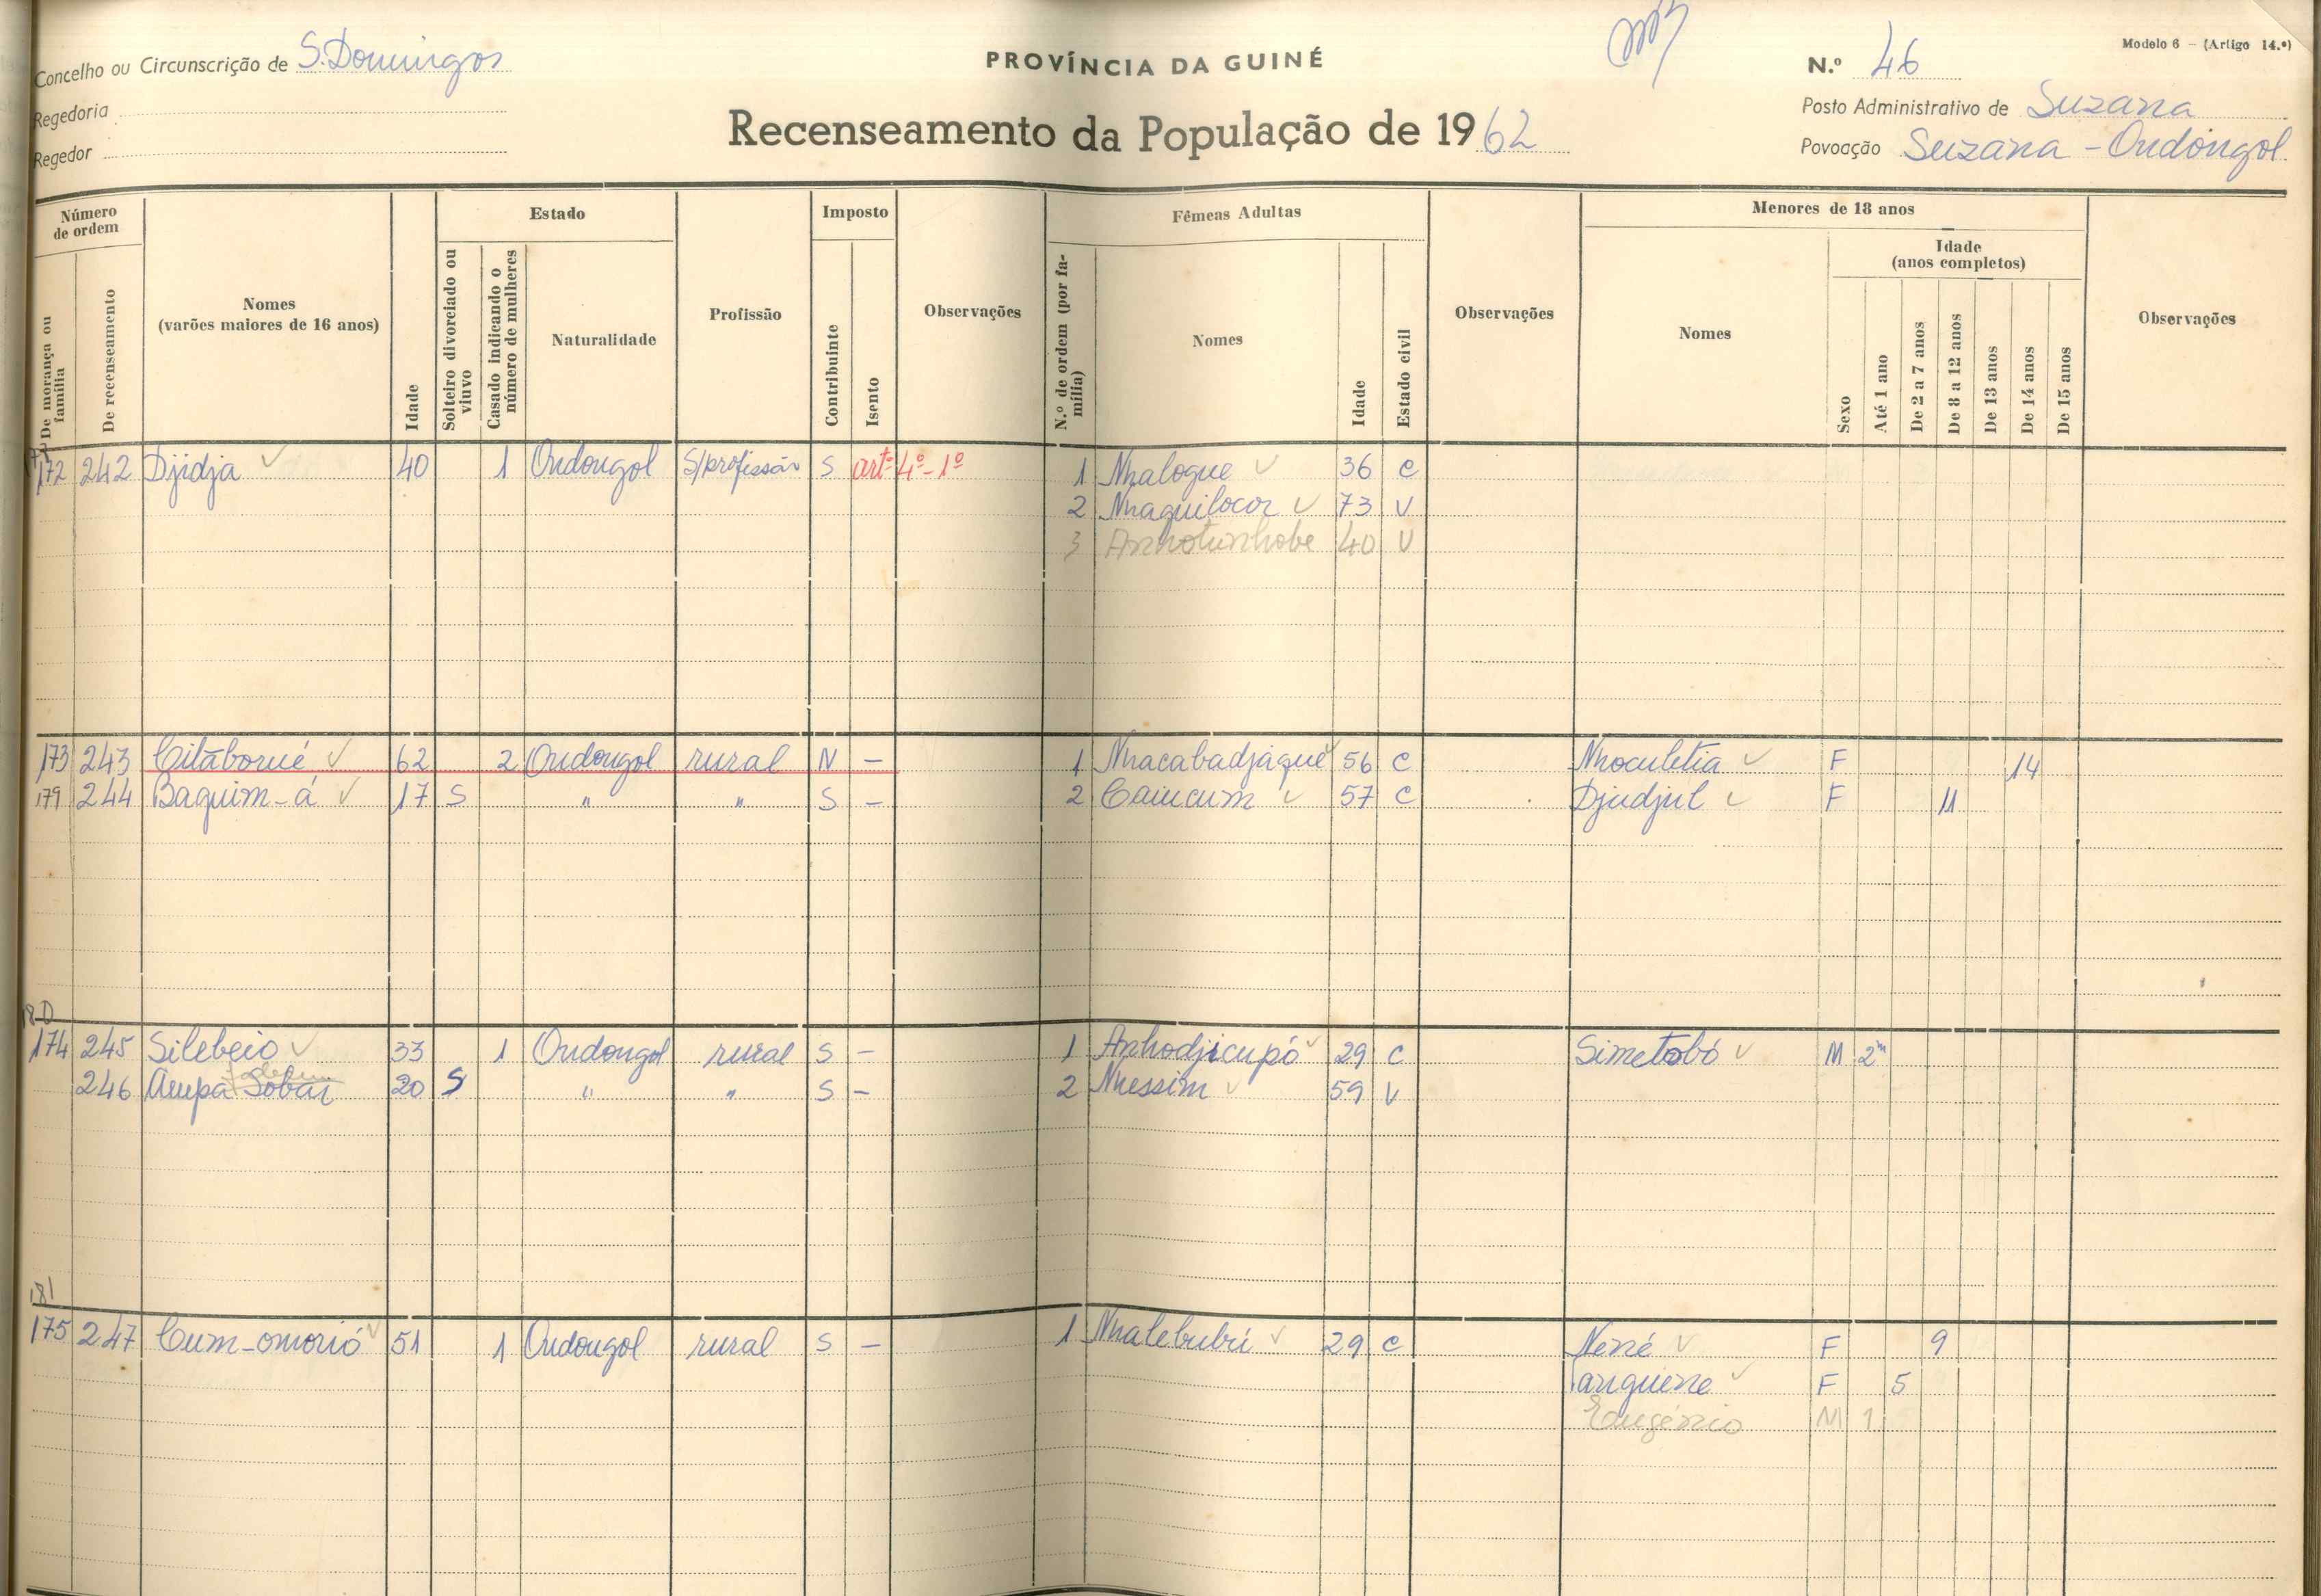 Concelho ou Circunscrição de S. Domingos
Regedoria
Regedor
PROVÍNCIA DA GUINÉ
Recenseamento da População de 1962
Modelo 6 - (Artigo 14.º)
N.º 46
Posto Administrativo de Suzana
Povoação Suzana - Ondongol
Número de ordem
De morança ou família
De recenseamento
Nomes
(varões maiores de 16 anos)
Idade
Estado
Solteiro divorciado ou viuvo
Casado indicando o número de mulheres
Naturalidade
Profissão
Imposto
Contribuinte
Isento
Observações
Fêmeas Adultas
N.º de ordem (por família)
Nomes
Idade
Estado civil
Observações
Menores de 18 anos
Nomes
Sexo
Idade
(anos completos)
Até 1 ano
De 2 a 7 anos
De 8 a 12 anos
De 13 anos
De 14 anos
De 15 anos
Observações
172 242 Djidja 40 1 Ondongol S/profissão S artº 4º-1º 1 Nhalogue 36 c
2 Nhaquilocor 73 V
3 Anhotunhobe 40 V
173 243 Citàborué 62 2 Ondongol rural N - 1 Nhacabadjaque 56 c Nhoculetia F 14
179 244 Baquim-á 17 S " " S - 2 Caiucum 57 c Djudjul F 11
180
174 245 Silebeio 33 1 Ondongol rural S - 1 Anhodjicupó 29 c Simetobó M 2m
246 Aupa Sobai 20 S " " S - 2 Nhessim 59 V
181
175 247 Cum-omorió 51 1 Ondongol rural S - 1 Nhalebubri 29 c Nené F 9
Tanguene F 5
Eougénio M 1